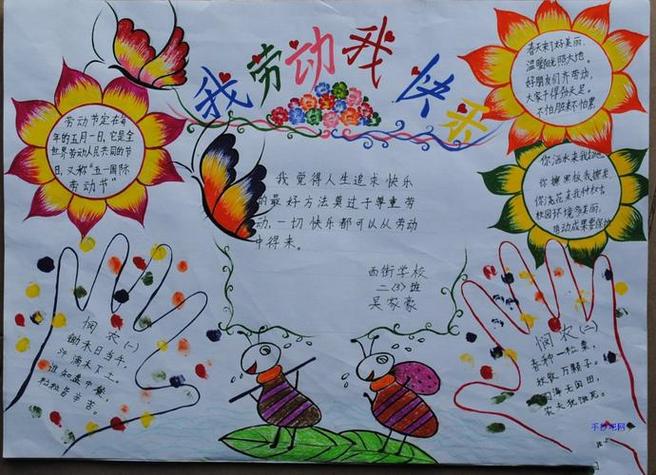 我劳动我快乐
劳动节定在每
年的五月一日，它是全
世界劳动人民共同的节
日，又称“五一国际
劳动节”
春天来了好美丽，
温暖阳光照大地。
好朋友们齐劳动，
大家干得劲大足。
不怕脏来不怕累
你洒水来我扫地，
你擦黑板我搬桌，
你浇花来我种树
校园环境多美丽，
劳动成果要保护
我觉得人生追求快乐
的最好方法莫过于尊重劳
动，一切快乐都可以从劳动
中得来。
西街学校
二(3)班
吴家豪
悯农(一)
锄禾日当午，
汗滴禾下土。
谁知盘中餐，
粒粒皆辛苦。
悯农(二)
春种一粒粟，
秋收万颗子。
四海无闲田，
农夫犹饿死。
手抄吧网